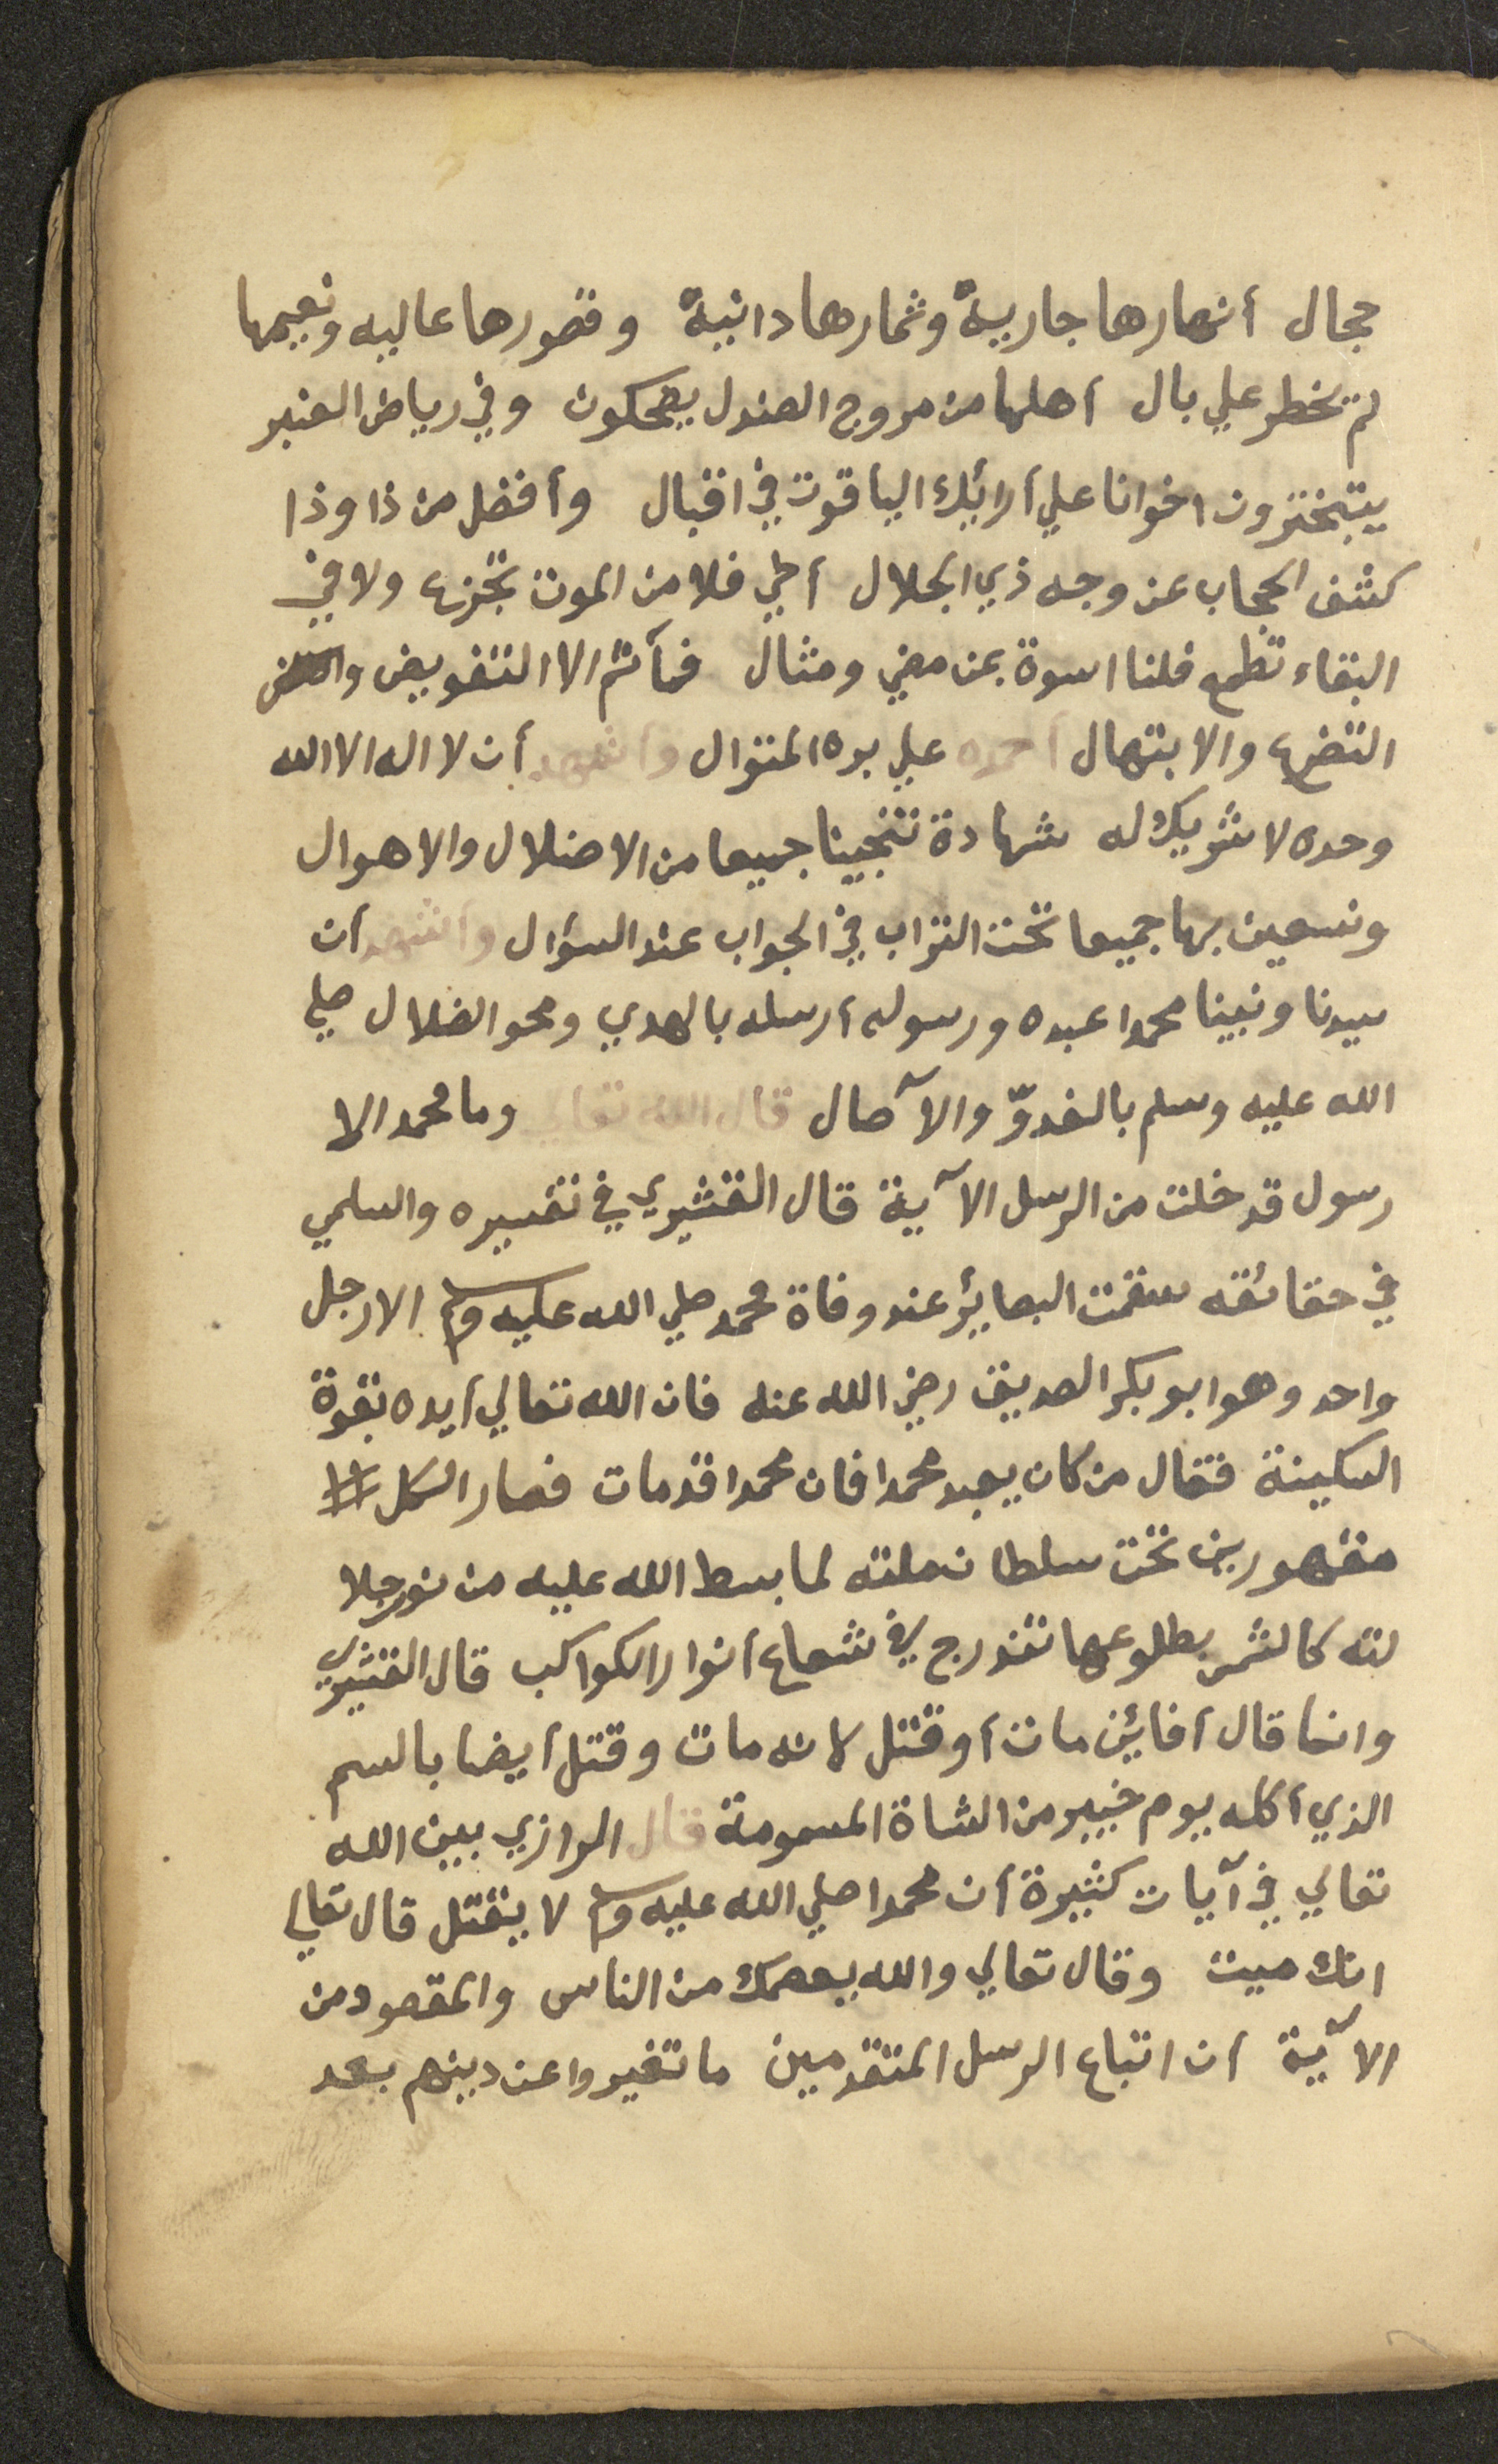 حجال أنهارها جارية وثمارها دانية وقصورها عاليه ونعيمها
لم يخطر علي بال أهلها من مروج الصندل يضحكون وفي رياض العنبر
يتبخترون اخوانا علي أرائك الياقوت في اقبال وأفضل من ذا وذا
كشف الحجاب عن وجه ذي الجلال أخي فلا من الموت تجزع ولا في
البقاء تطمع فلنا اسوة بمن مضي ومثال فمآ ثم الا التفويض
التضرع والابتهال أحمده علي بره المتوال وأشهد أن لا اله الا الله
وحده لا شريك له شهادة تنجينا جميعا من الاضلال والاهوال
ونسعين بها جميعا تحت التراب في الجواب عند السؤال وأشهد أن
سيدنا ونبينا محمدا عبده ورسوله أرسله بالهدي ومحو الضلال صلي
الله عليه وسلم بالغدوّ والآصال قال الله تعالي وما محمد الا
رسول قد خلت من الرسل الآية قال القشيري في تفسيره والسلمي
في حقائقه سقمت البصائر عند وفاة محمد صلي الله عليه وسلم الا رجل
واحد وهو ابو بكر الصديق رضي الله عنه فان الله تعالي أيده بقوة
السكينة فقال من كان يعبد محمدا فان محمدا قد مات فصار الكل
مقهورين تحت سلطا نه لته لما بسط الله عليه من نور جلا
لته كالشمس بطلوعها تندرج في شعاع أنوار الكواكب قال القشيري
وانما قال أفائن مات أو قتل لانه مات وقتل أيضا بالسم
الذي أكله يوم خيبر من الشاة المسمومة قال الرازي بين الله
تعالي في آيات كثيرة أن محمدا صلي الله عليه وسلم لا يقتل قال تعالي
انك ميت وقال تعالي والله يعصمك من الناس والمقصود من
الآية أن اتباع الرسل المتقدمين ما تغيروا عن دينهم بعد